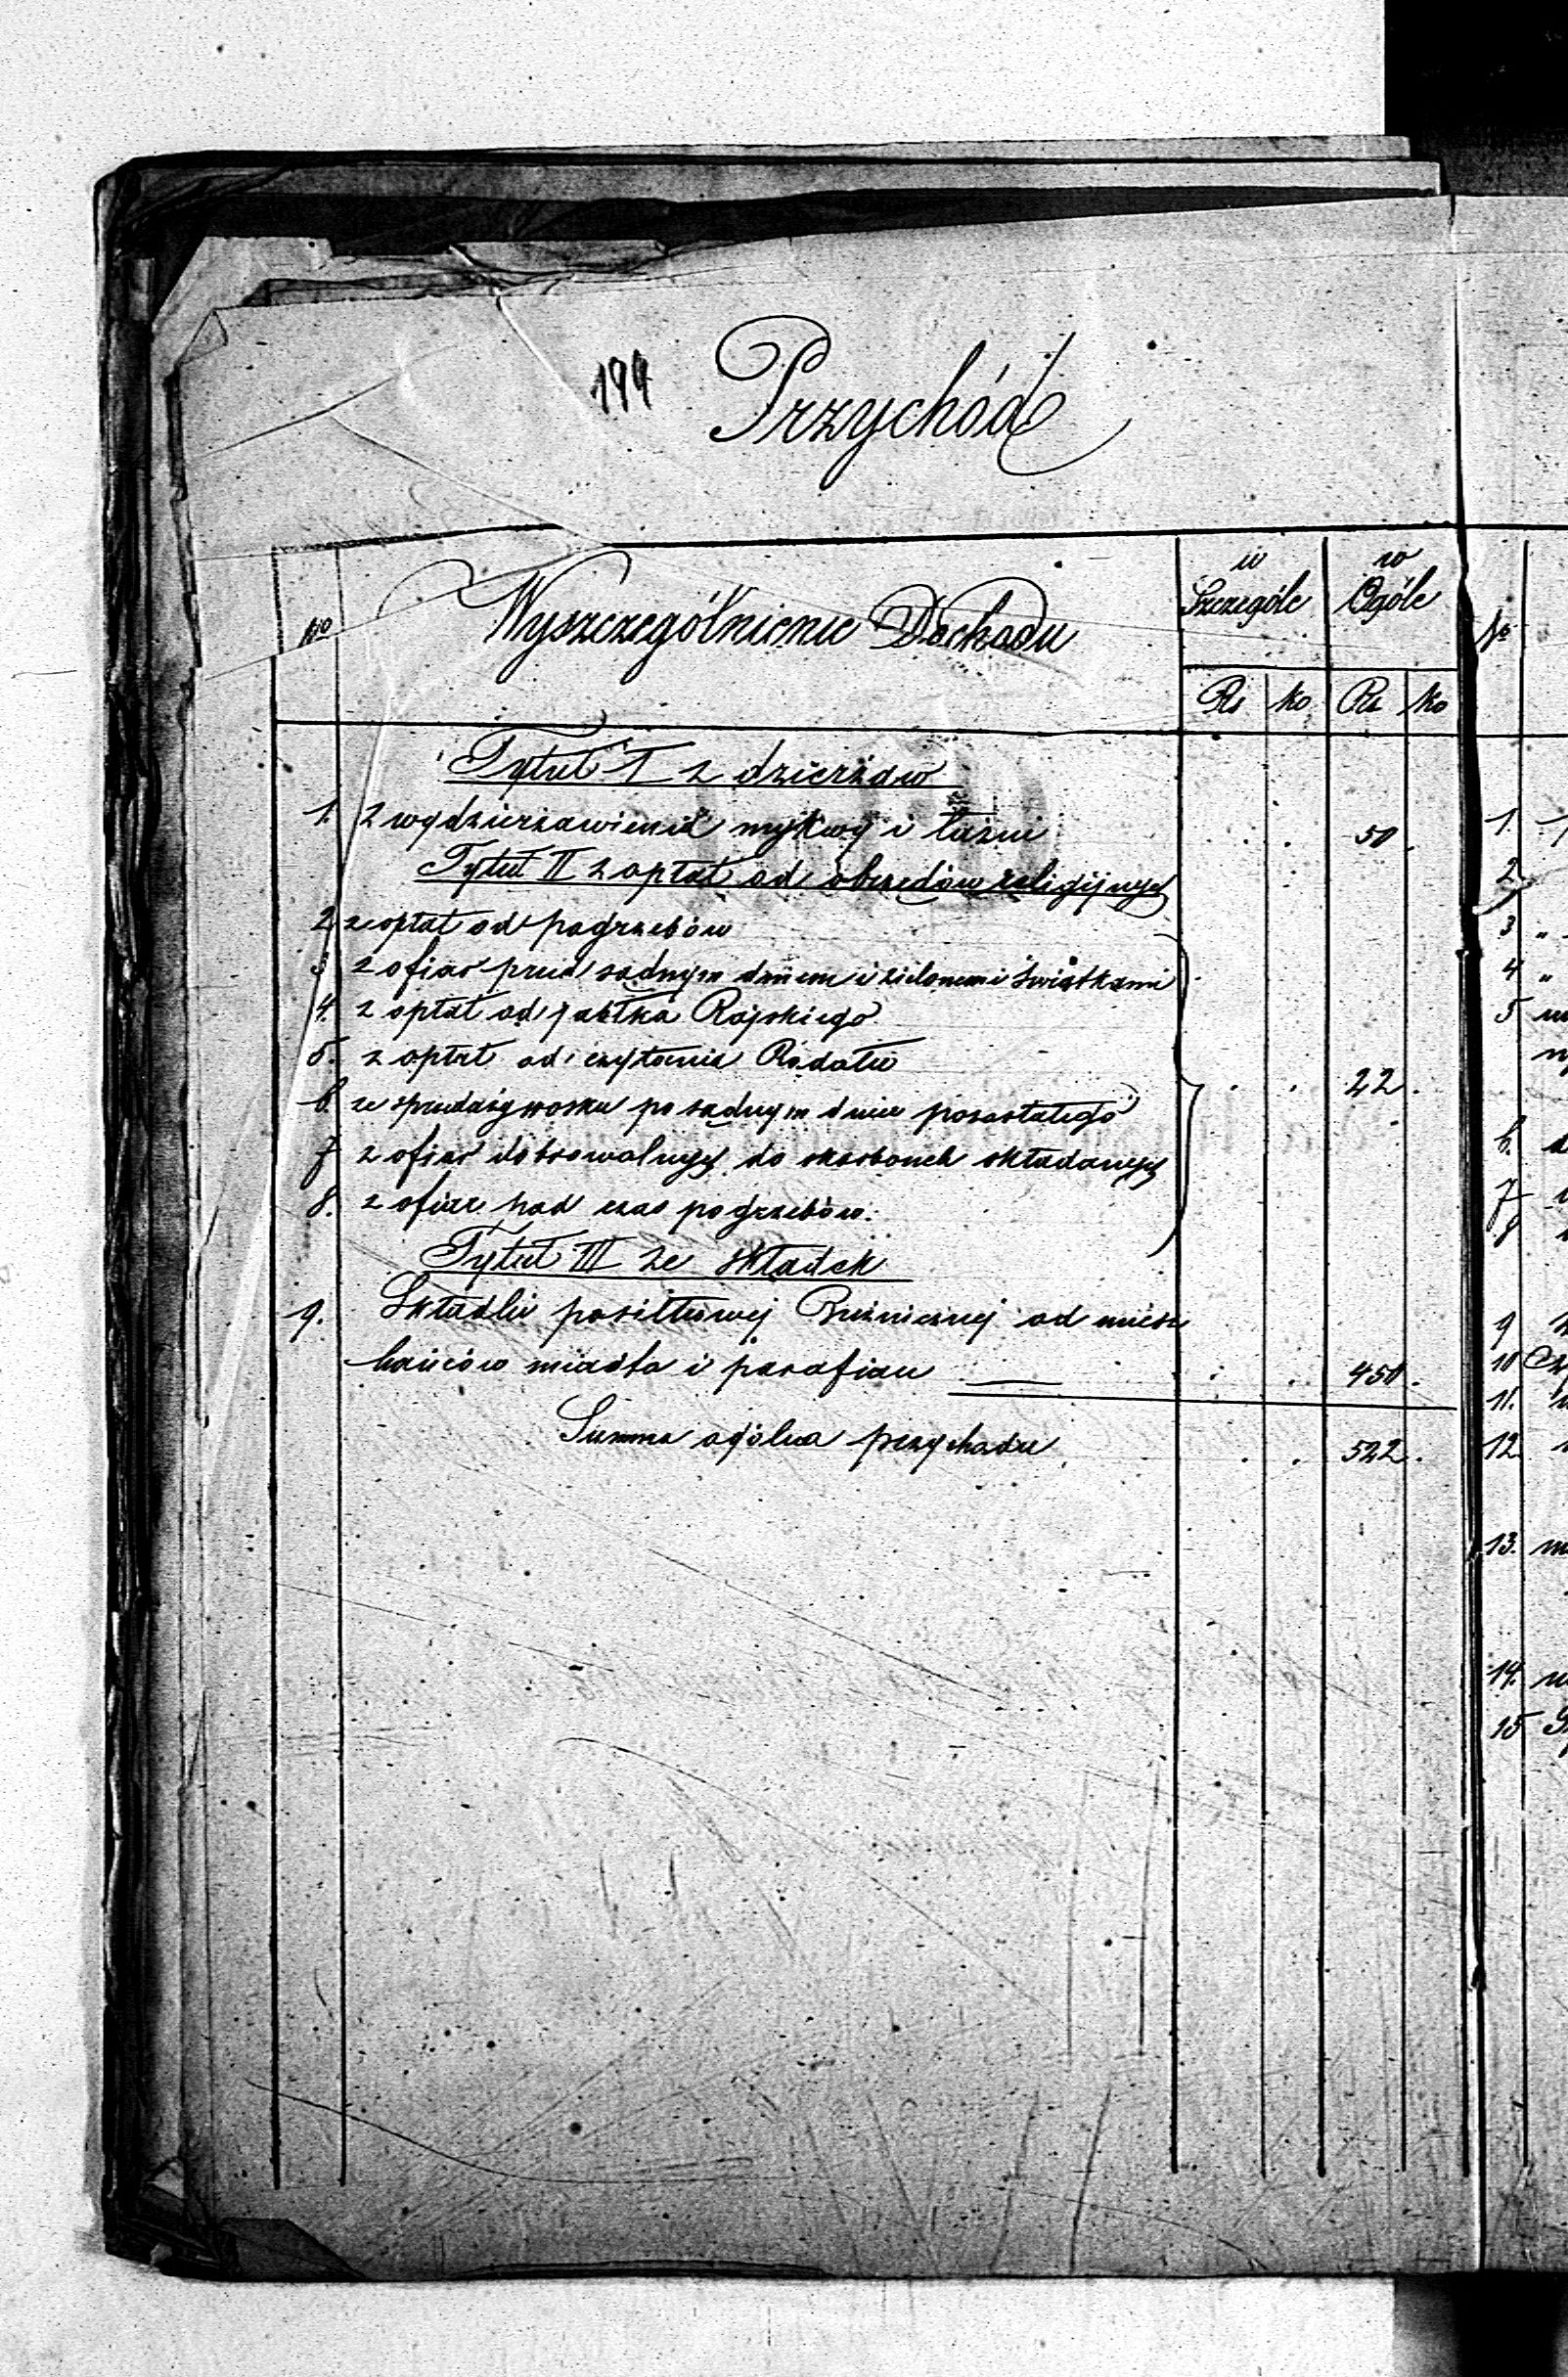 194 Przychód
No Wyszczególnienie Dochodu w Szczególe w Ogóle No
Rs ko Rs ko
Tytuł I z dzierżaw
1. z wydzierżawienia mykwy i łaźni . . 50 . 1.
Tytuł II z opłat od obrzędów religijnych 2
2 z opłat od pogrzebów 3 „
3 z ofiar przed sądnym dniem i zielonemi Świątkami 4 „
4. z opłat od jabłka Rajskiego 5
5. z opłat od czytania Rodału
6. ze sprzedaży wosku po sądnym dniu pozostałego . . 22 .
7 z ofiar dobrowolnych do skarbonek składanych 7
8. z ofiar pod czas pogrzebów. 8
Tytuł III ze składek
9. Składki posiłkowej Bużnicznej od miesz 9
kańców miasta i parafian . . 450 . 10
11.
Summa ogólna przychodu . . 522 . 12
13.
14.
15